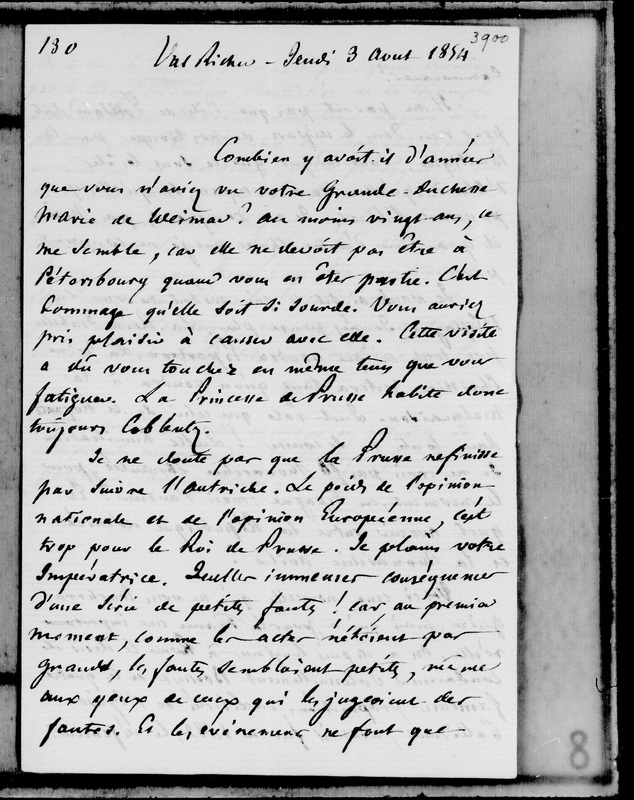 130
3900
Val Richer - Jeudi 3 Aout 1854
Combien y avoit-il d'années
que vous n'aviez vu votre Grande-Duchesse
Marie de Weimar ? Au moins vingt ans, ce
me semble, car elle ne devoit pas être à
Pétersbourg quand vous en êtes partie. C'est
dommage qu'elle soit si sourde. Vous auriez
pris plaisir à causer avec elle. Cette visite
a dû vous toucher en même tems que vous
fatiguer. La Princesse de Prusse habite donc
toujours Coblentz.
Je ne doute pas que la Prusse ne finisse
par suivre l'Autriche. Le poids de l'opinion
nationale et de l'opinion Européenne, c'est
trop pour le Roi de Prusse. Je plains votre
Impératrice. Quelles immenses conséquences
d'une série de petites fautes ! Car, au premier
moment, comme les actes n'étoient pas
grands, les fautes sembloient petites, même
aux yeux de ceux qui les jugeoient des
fautes. Et les événemens ne font que
8